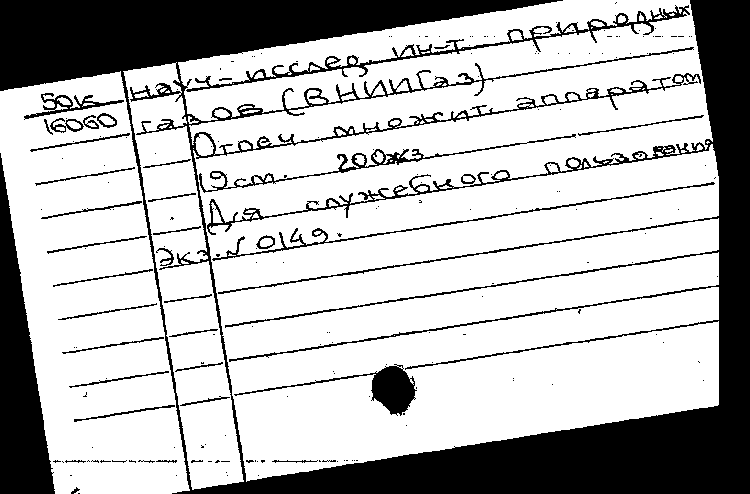 50к
16060
науч-исслед. ин-т природных
газов (ВНИИГаз)
Отпеч. множит. аппаратом
19 см. 200 экз.
Для служебного пользования
Экз. № 0149.